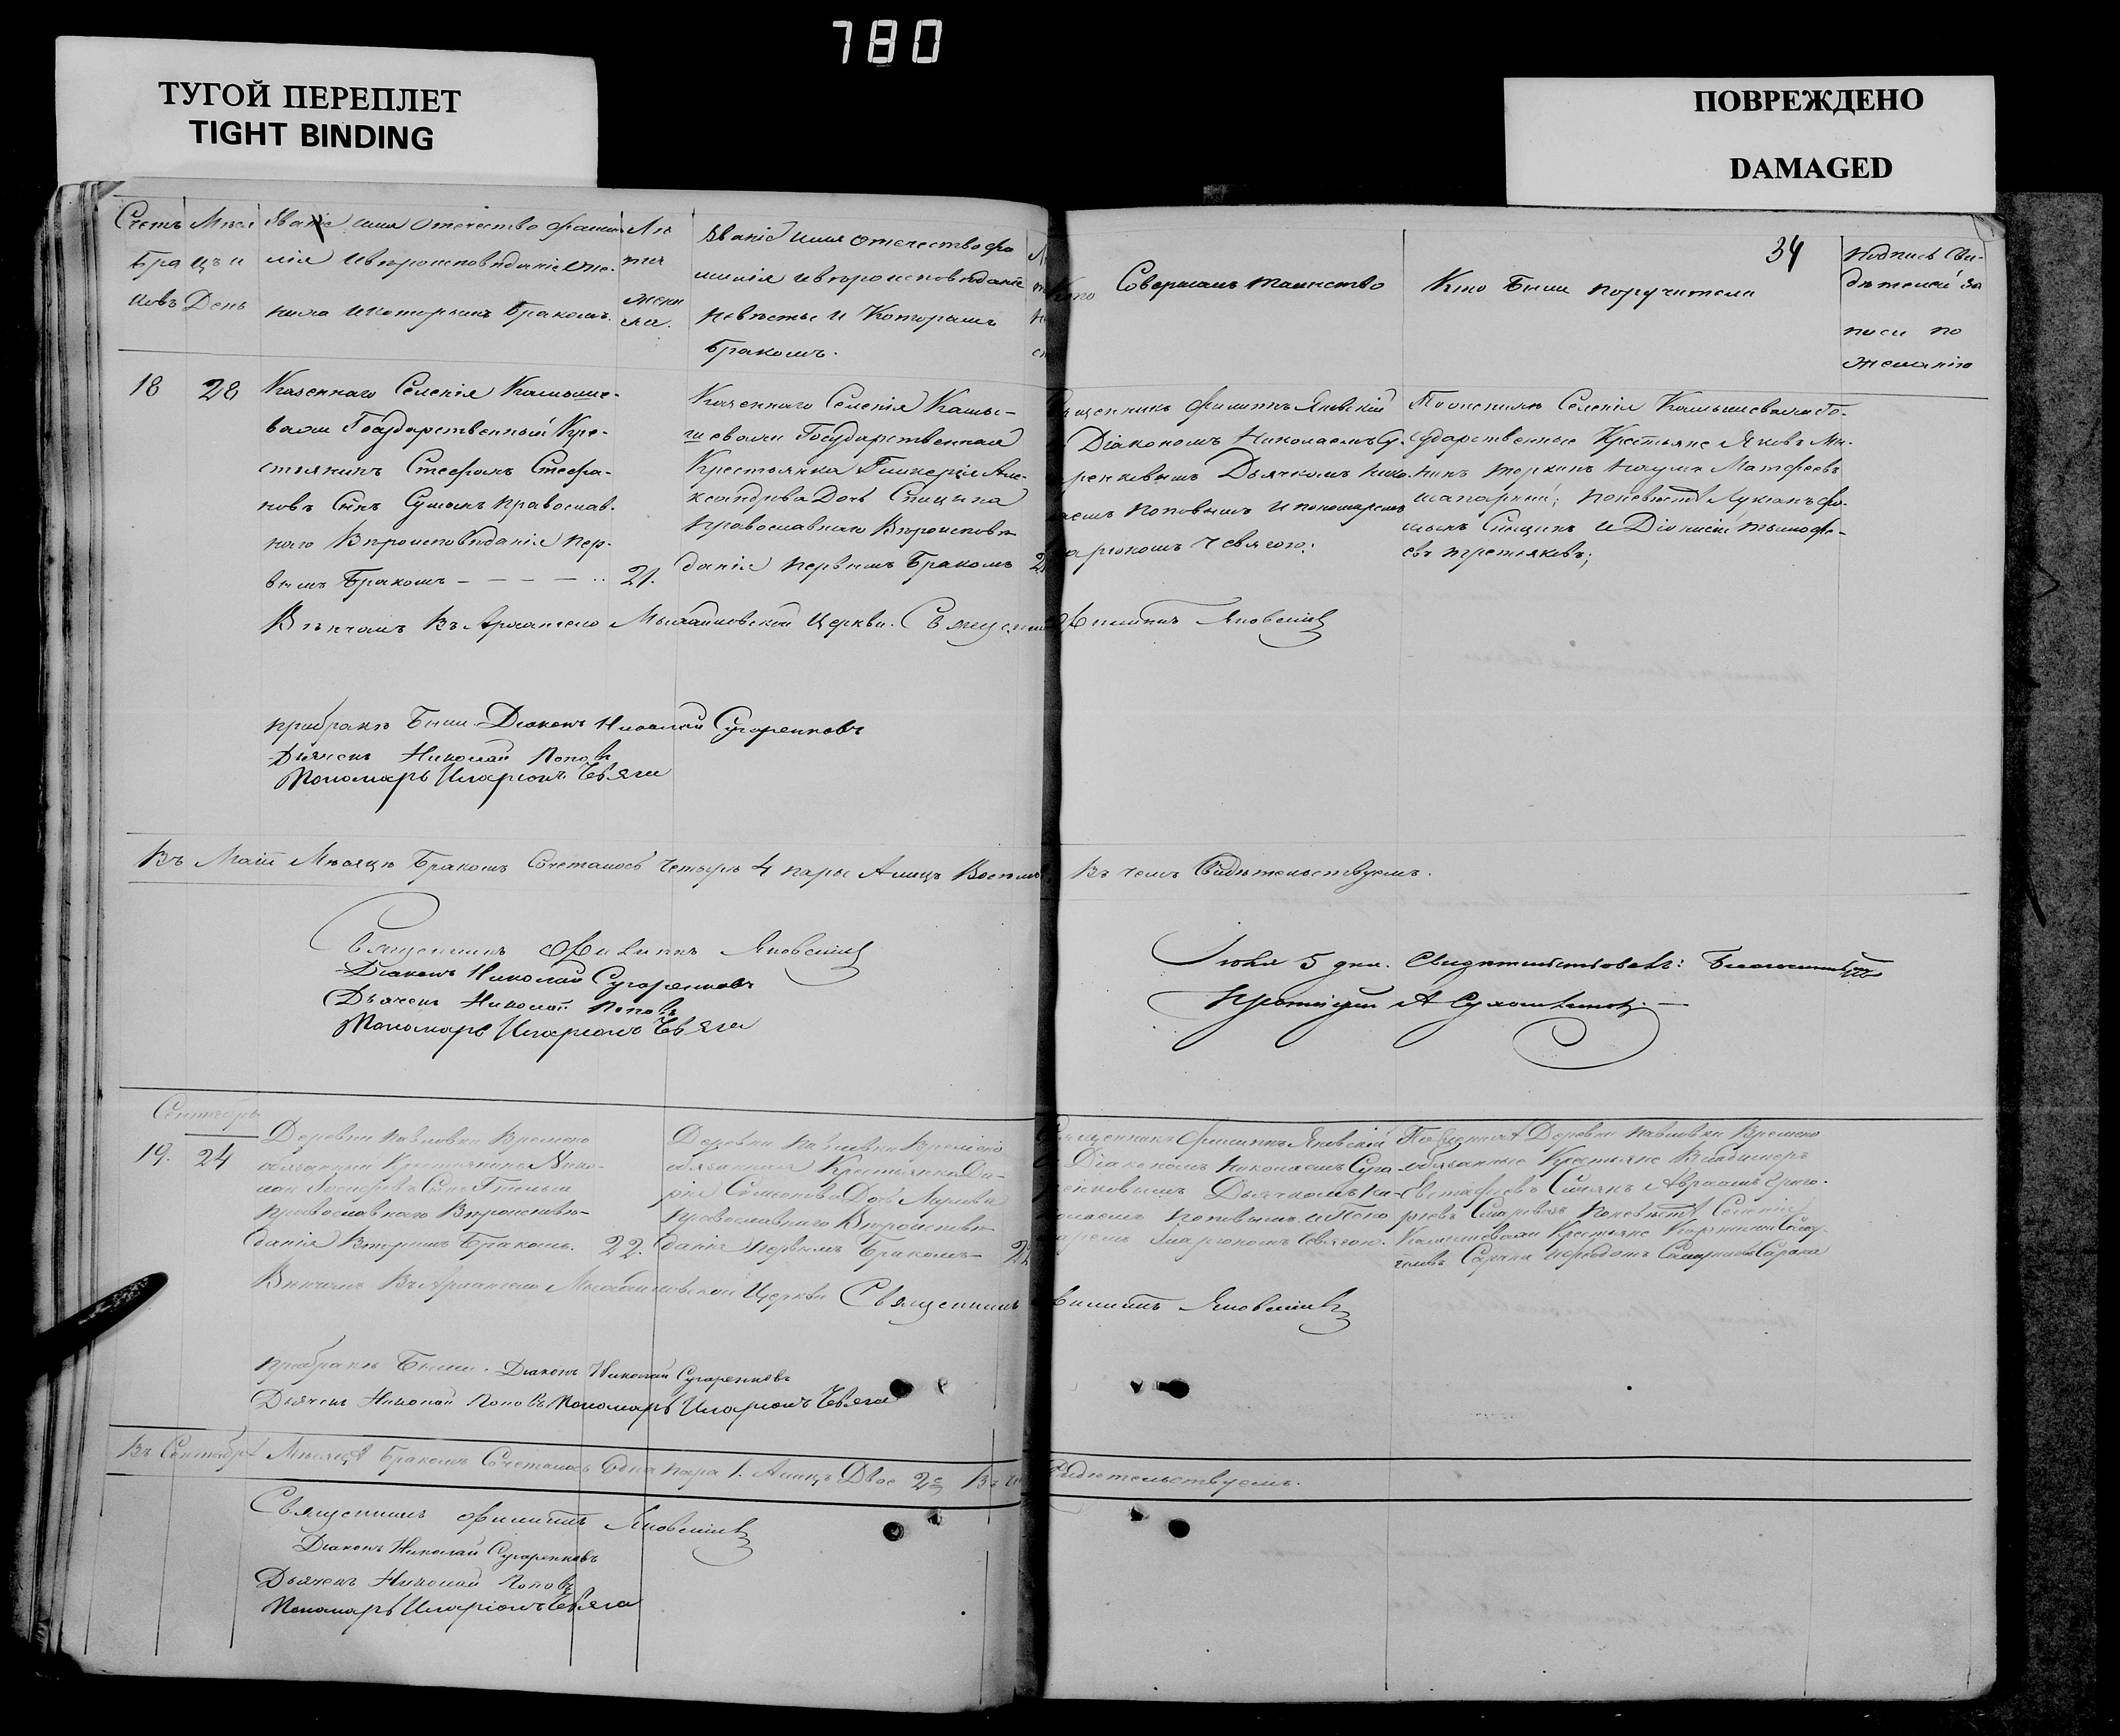 780
ТУГОЙ ПЕРЕПЛЕТ
TIGHT BINDING
ПОВРЕЖДЕНО
DAMAGED
34
Счетъ
Бра
ковъ
Месе
цъ и
День
Званіе имя отечество фами-
лія и вѣроисповѣданіе же-
ниха и которымъ бракомъ.
Лѣ
та
жени
ха.
Званіе имя отечество фа
милія и вѣроисповѣданіе
невѣсты и Которымъ
Бракомъ.
Кто Совершалъ таинство
Кто Были поручители
Подпись Сви-
дѣтелей за
писи по
желанію
18
28
Казеннаго Селенія Камыше-
вахи Государственный Кре-
стьянинъ Стефанъ Стефа-
новъ Сынъ православ-
наго Вѣроисповѣданія пер-
вымъ Бракомъ 21.
Казеннаго Селенія Камы-
шевахи Государственная
Крестьянка Гликерія Але-
ксандрова Дочь Спицына
православнаго Вѣроисповѣ
данія первымъ Бракомъ
Священникъ Филиппъ Яновскій
Діакономъ Николаемъ Су-
аренковымъ Дьячкомъ Нико-
аемъ Поповымъ и пономаремъ
аріономъ Чевягою;
Селенія Камышевахи Го-
сударственные Крестьяне Яковъ
Наумъ Матфеевъ
по невѣстѣ Лукіянъ
и Діонисій Тимофе-
евъ Третьяковъ;
Вѣнчалъ Въ Архангело Михайловской Церкви. Священникъ Филиппъ Яновскій
при бракѣ Были Діаконъ Николай Сугаренковъ
Дьячекъ Николай Поповъ
Пономарь Иларіонъ Чевяга
Въ Маіи Мѣсяцѣ Бракомъ Сочеталось четыре 4 пары А лицъ Восемь Въ чемъ Свидѣтельствуемъ.
Священникъ Филиппъ Яновскій
Діаконъ Николай Сугаренковъ
Дьячекъ Николай Поповъ
Пономарь Иларіонъ Чевяга
Іюня 5 дня. Свидѣтельствовалъ: Благочинный
Протоіерей А
Сентябрь
19.
24
Деревни Павловки Временно
обязанный Крестьянинъ Нико-
лай Сынъ
православнаго Вѣроисповѣ-
данія Вторымъ Бракомъ. 22.
Деревни Павловки Временно
обязанная Крестьянка Да-
рія Симеонова Дочь
православнаго Вѣроисповѣ-
данія первымъ Бракомъ 22
Священникъ Филиппъ Яновскій
Діакономъ Николаемъ Суга
ренковымъ Дьячкомъ Ни-
колаемъ Поповымъ и Поно
маремъ Иларіономъ Чевягою.
Деревни Павловки Временно
обязанные Крестьяне Владимиръ
Евстафіевъ Авраамъ Григо-
рьевъ по невѣстѣ Селенія
Камышевахи Крестьяне
Вѣнчалъ Въ Архангело Михайловской Церкви Священникъ Филиппъ Яновскій
при бракѣ Были. Діаконъ Николай Сугаренковъ
Дьячекъ Николай Поповъ Пономарь Иларіонъ Чевяга
Въ Сентябрѣ Мѣсяцѣ Бракомъ Сочеталось Одна пара 1. А лицъ Двое 2е Въ чемъ Свидѣтельствуемъ.
Священникъ Филиппъ Яновскій
Діаконъ Николай Сугаренковъ
Дьячекъ Николай Поповъ
Пономарь Иларіонъ Чевяга